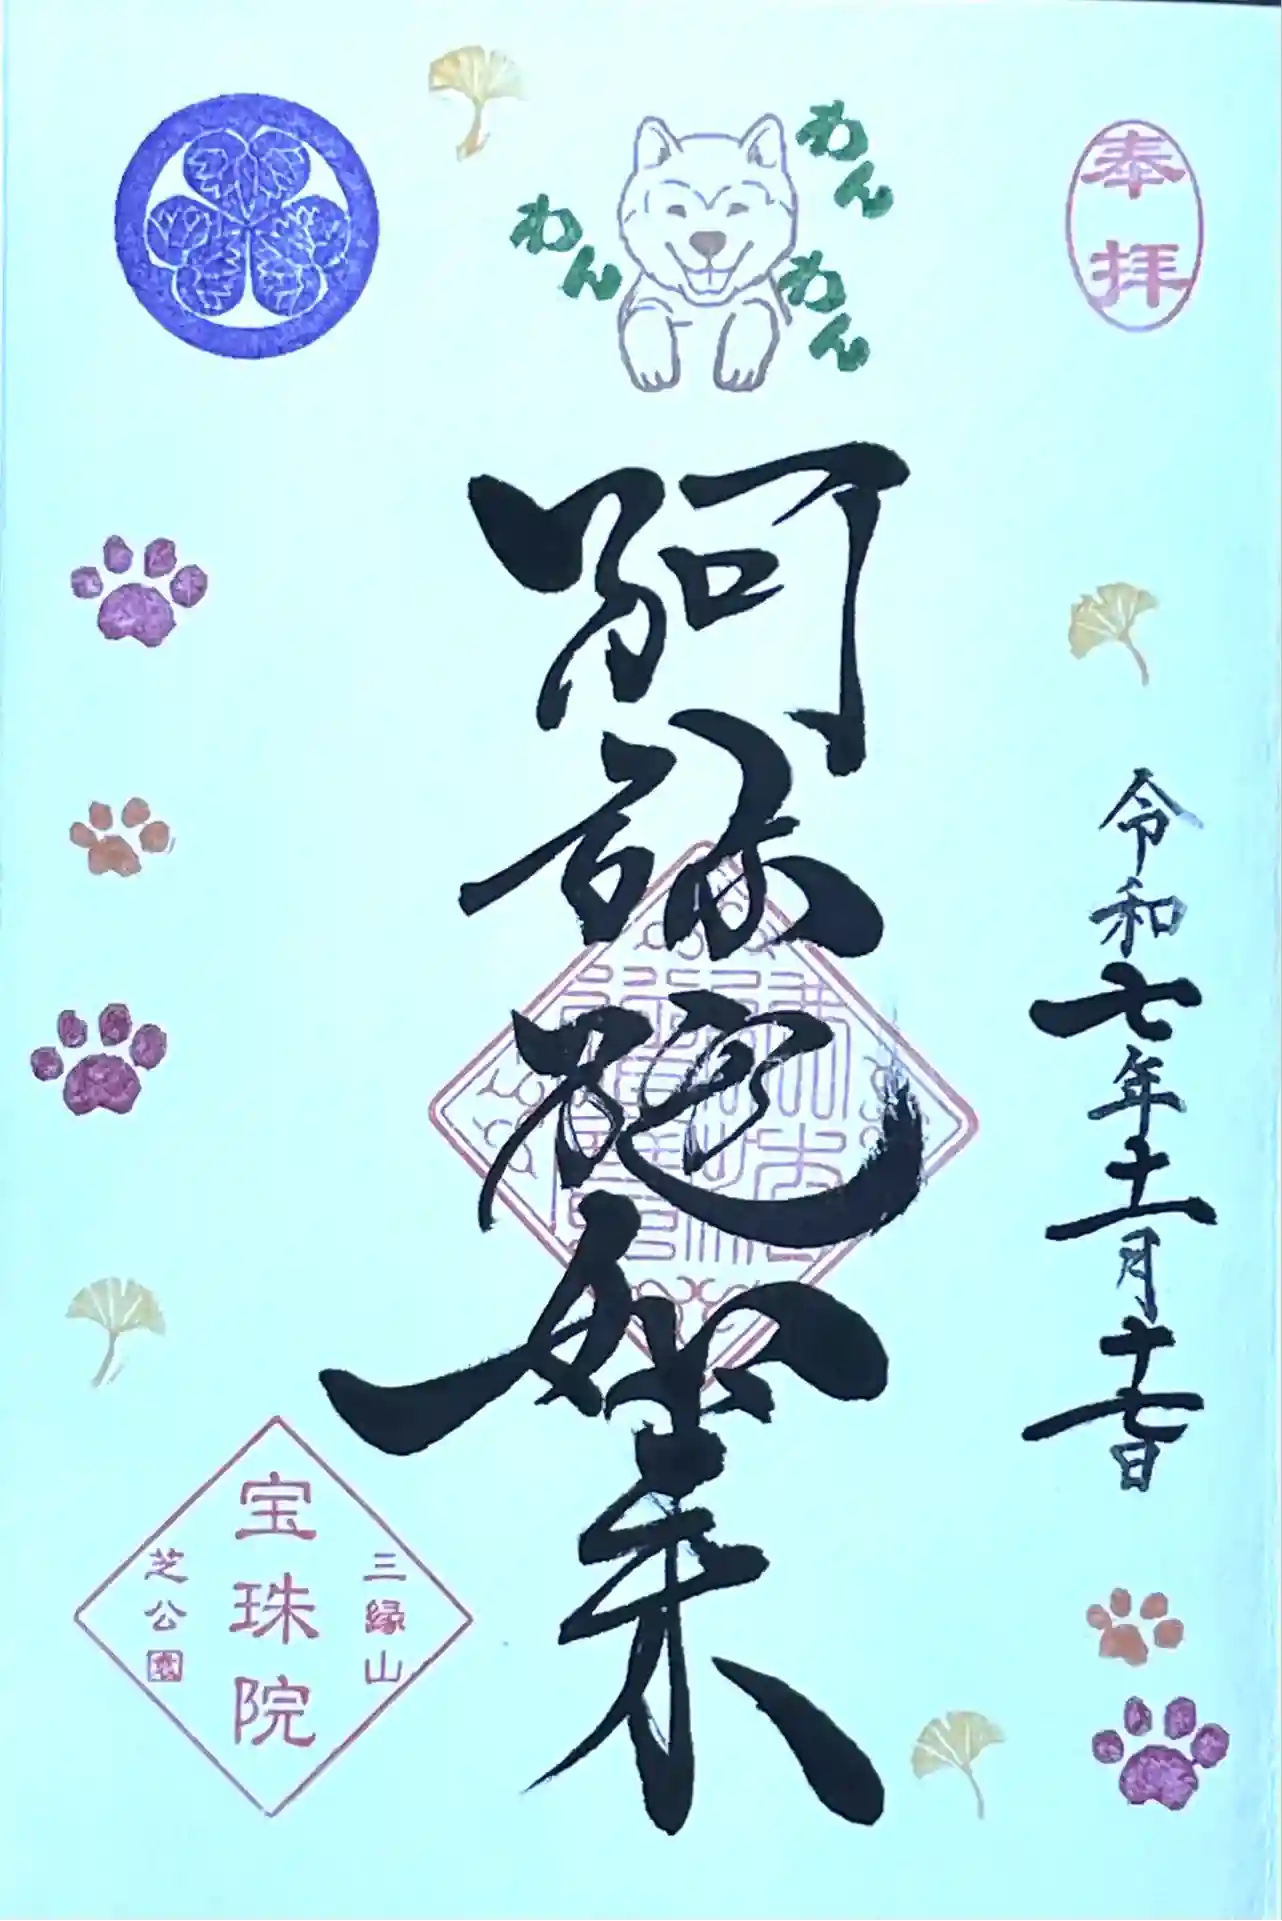 奉拝
わん
わん
わん
令和七年十一月十七日
阿弥陀如来
三縁山
宝珠院
芝公園